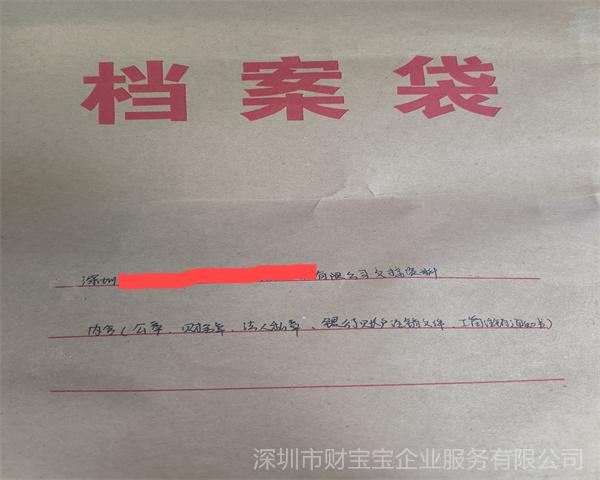 档案袋
深圳 有限公司交接资料
内含(公章、财务章、法人私章、银行账户注销文件、工商注销通知书)
深圳市财宝宝企业服务有限公司